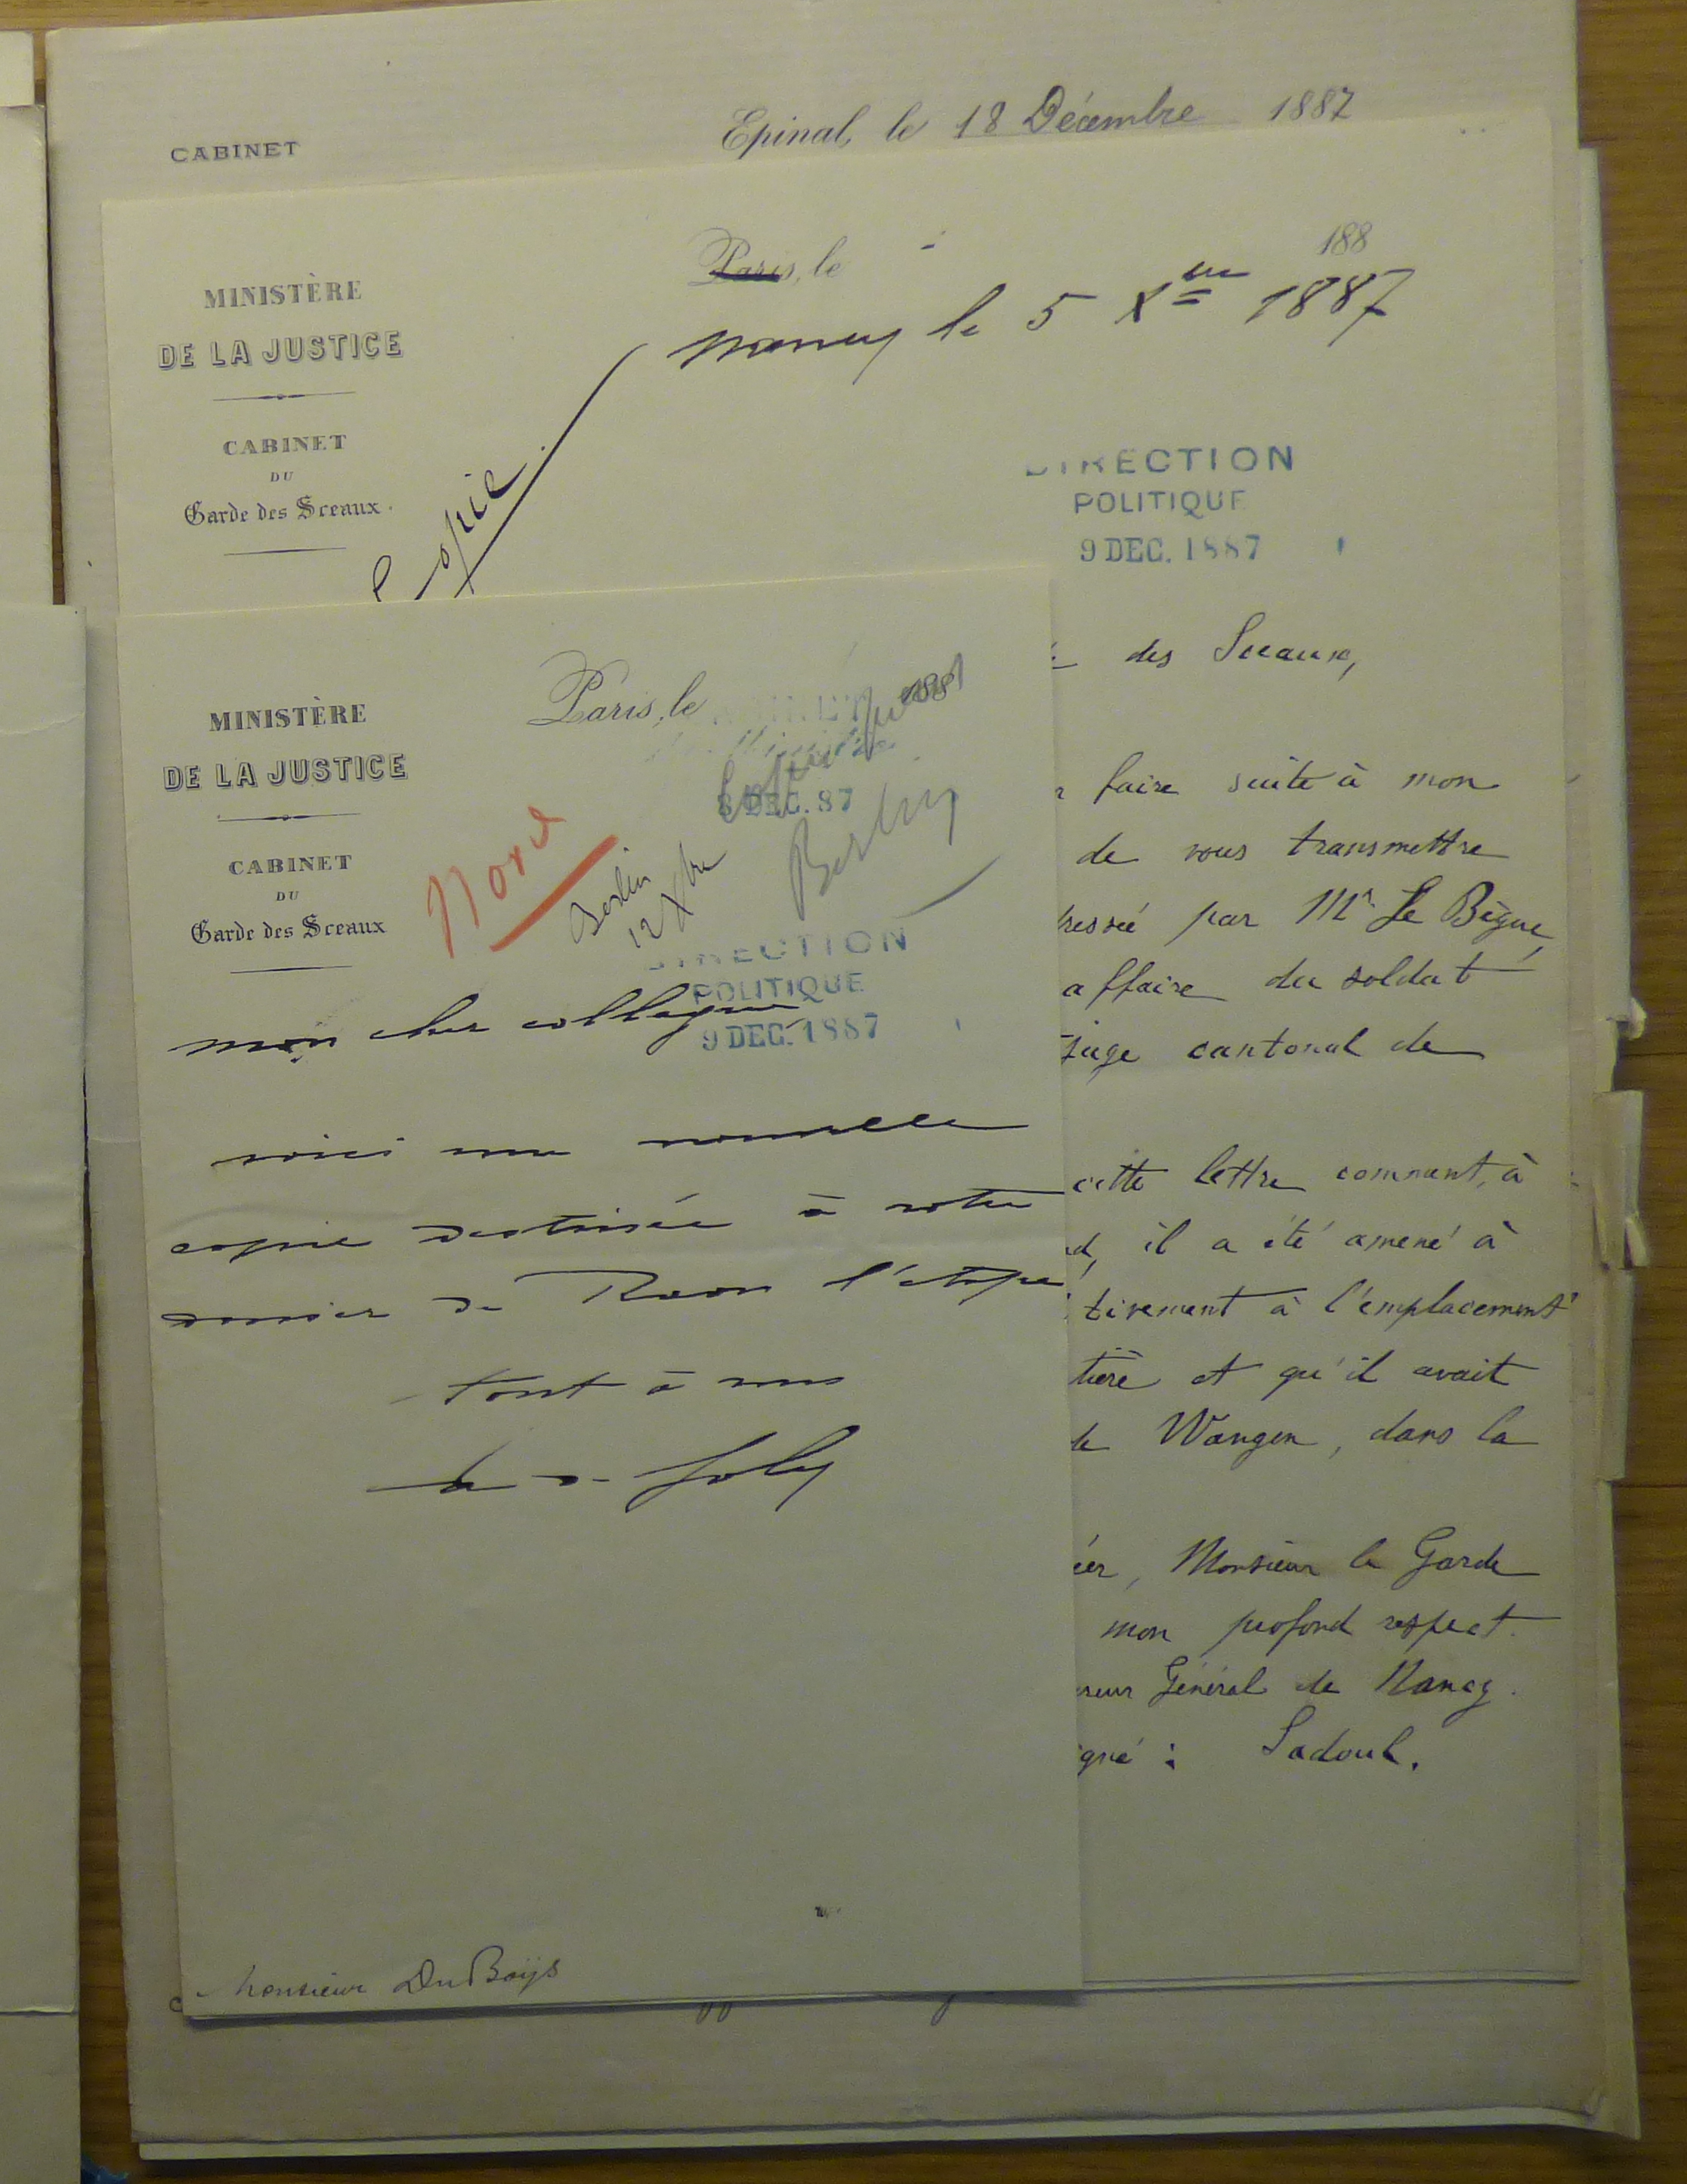 CABINET
Epinal, le 18 Décembre 1887
MINISTÈRE
DE LA JUSTICE
CABINET
DU
Garde des Sceaux
Paris, le
188
Nancy le 5 Xbre 1887
Copie
DIRECTION
POLITIQUE
9 DEC. 1887
des Sceaux,
faire suite à mon
de vous transmettre
par Mr Le Bègue,
affaire du soldat
cantonal de
cette lettre comment, à
il a été amené à
à l'emplacement
et qu'il avait
Wangen, dans la
Monsieur le Garde
mon profond respect.
Général de Nancy.
Sadoul.
MINISTÈRE
DE LA JUSTICE
CABINET
DU
Garde des Sceaux
Paris, le
188
8 DEC. 87
Nord
Berlin
12 Xbre
Berlin
DIRECTION
POLITIQUE
9 DEC. 1887
mon cher collègue
voici une nouvelle
copie destinée à votre
dossier de Raon l'étape
tout à vous
Joly
Monsieur DuBoÿs